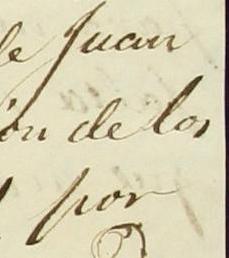 de Juan
ión de los
por